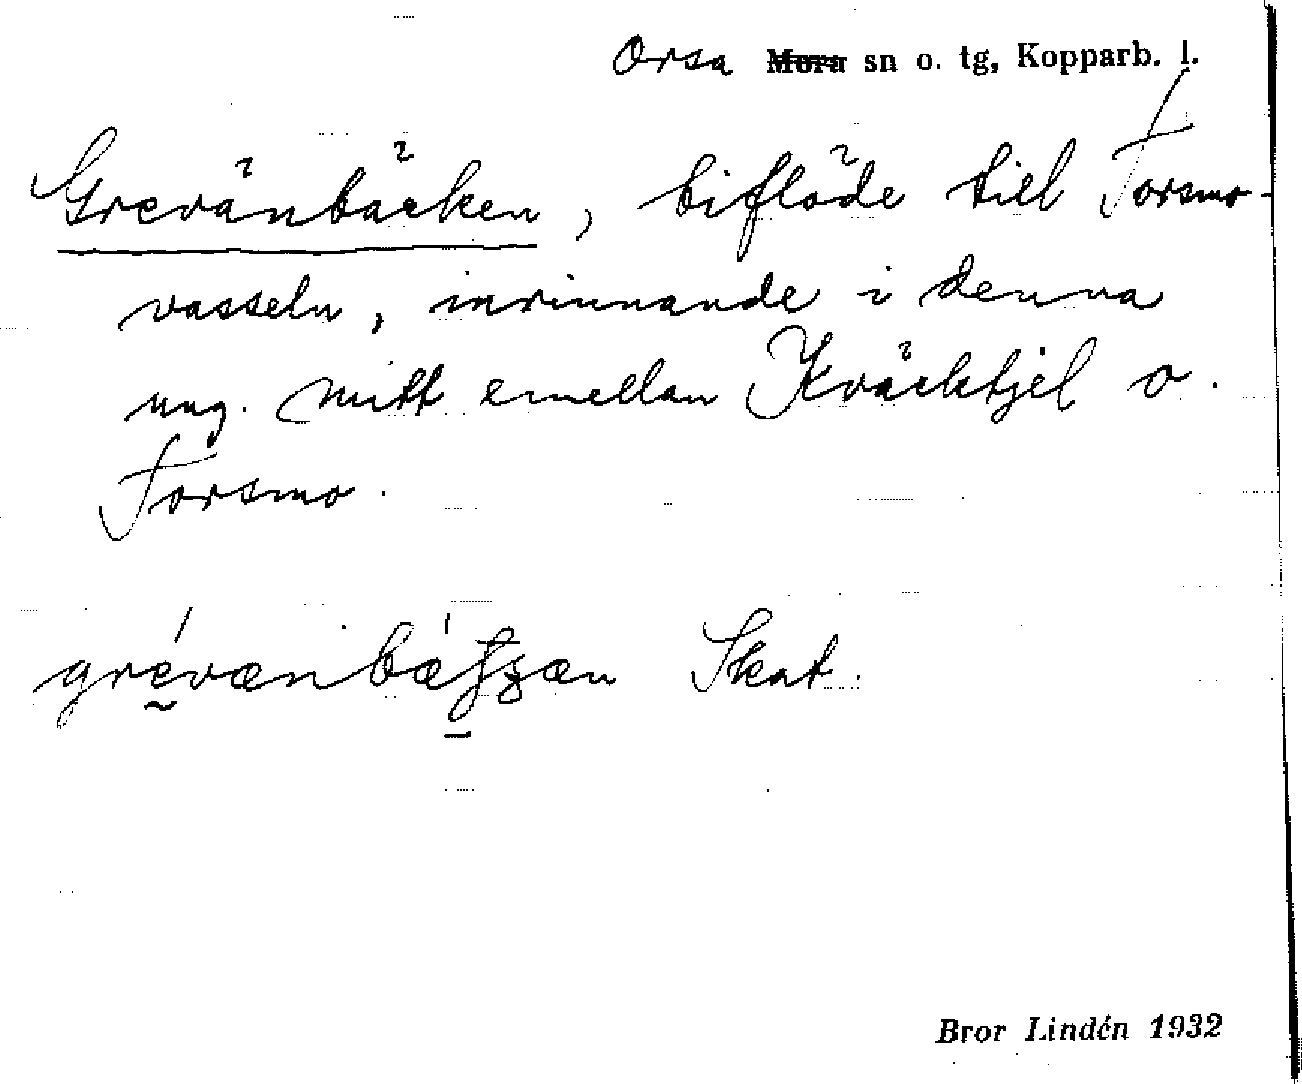 Orsa Mora sn o. tg, Kopparb. l.
Grevänbäcken, biflöde till Forsmo-
vasseln, inrinnande i denna
ung. mitt emellan Kväcktjel o.
Forsmo.
Skat.
Bror Lindén 1932